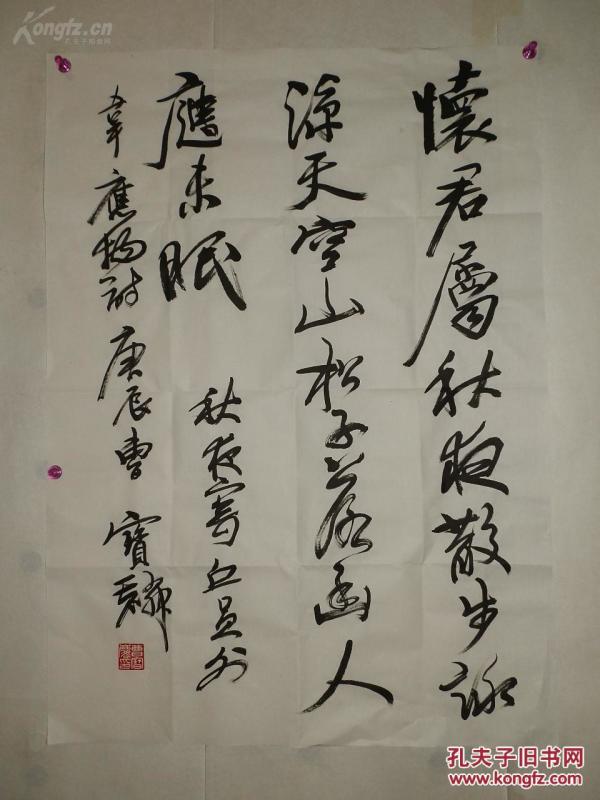 懷君屬秋夜散步詠
涼天空山松子落幽人
應未眠
秋夜寄丘員外
韋應物詩 庚辰曹寶麟
Kongfz.cn
孔夫子拍卖网
孔夫子旧书网
www.kongfz.com